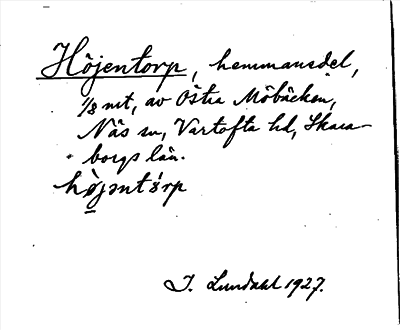 Höjentorp, hemmansdel,
1/8 mt, av Östra Möbäcken,
Näs sn, Vartofta hd, Skara-
borgs län.
hö̀jəntórp
I. Lundahl 1927.